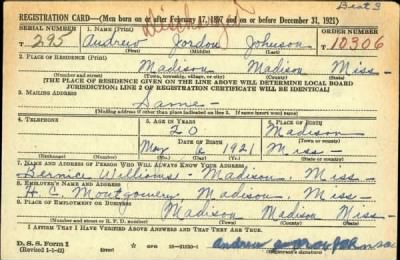 Beat 3
REGISTRATION CARD—(Men born on or after February 17, 1897 and on or before December 31, 1921)
SERIAL NUMBER
1. NAME (Print)
ORDER NUMBER
295
Andrew Jordon Johnson
10306
(First) (Middle) (Last)
2. PLACE OF RESIDENCE (Print)
Madison Madison Miss-
(Number and street) (Town, township, village, or city) (County) (State)
[THE PLACE OF RESIDENCE GIVEN ON THE LINE ABOVE WILL DETERMINE LOCAL BOARD
JURISDICTION; LINE 2 OF REGISTRATION CERTIFICATE WILL BE IDENTICAL]
3. MAILING ADDRESS
Same-
[Mailing address if other than place indicated on line 2. If same insert word same]
4. TELEPHONE
5. AGE IN YEARS
6. PLACE OF BIRTH
20
Madison
DATE OF BIRTH
(Town or county)
May 6 1921
Miss-
(Exchange) (Number)
(Mo.) (Day) (Yr.)
(State or country)
7. NAME AND ADDRESS OF PERSON WHO WILL ALWAYS KNOW YOUR ADDRESS
Bernice Williams- Madison, Miss-
8. EMPLOYER'S NAME AND ADDRESS
H. C. Montgomery, Madison, Miss-
9. PLACE OF EMPLOYMENT OR BUSINESS
Madison Madison Miss-
(Number and street or R. F. D. number) (Town) (County) (State)
I AFFIRM THAT I HAVE VERIFIED ABOVE ANSWERS AND THAT THEY ARE TRUE.
D. S. S. Form 1
(Revised 1-1-42)
andrew Johnson
(Registrant's signature)